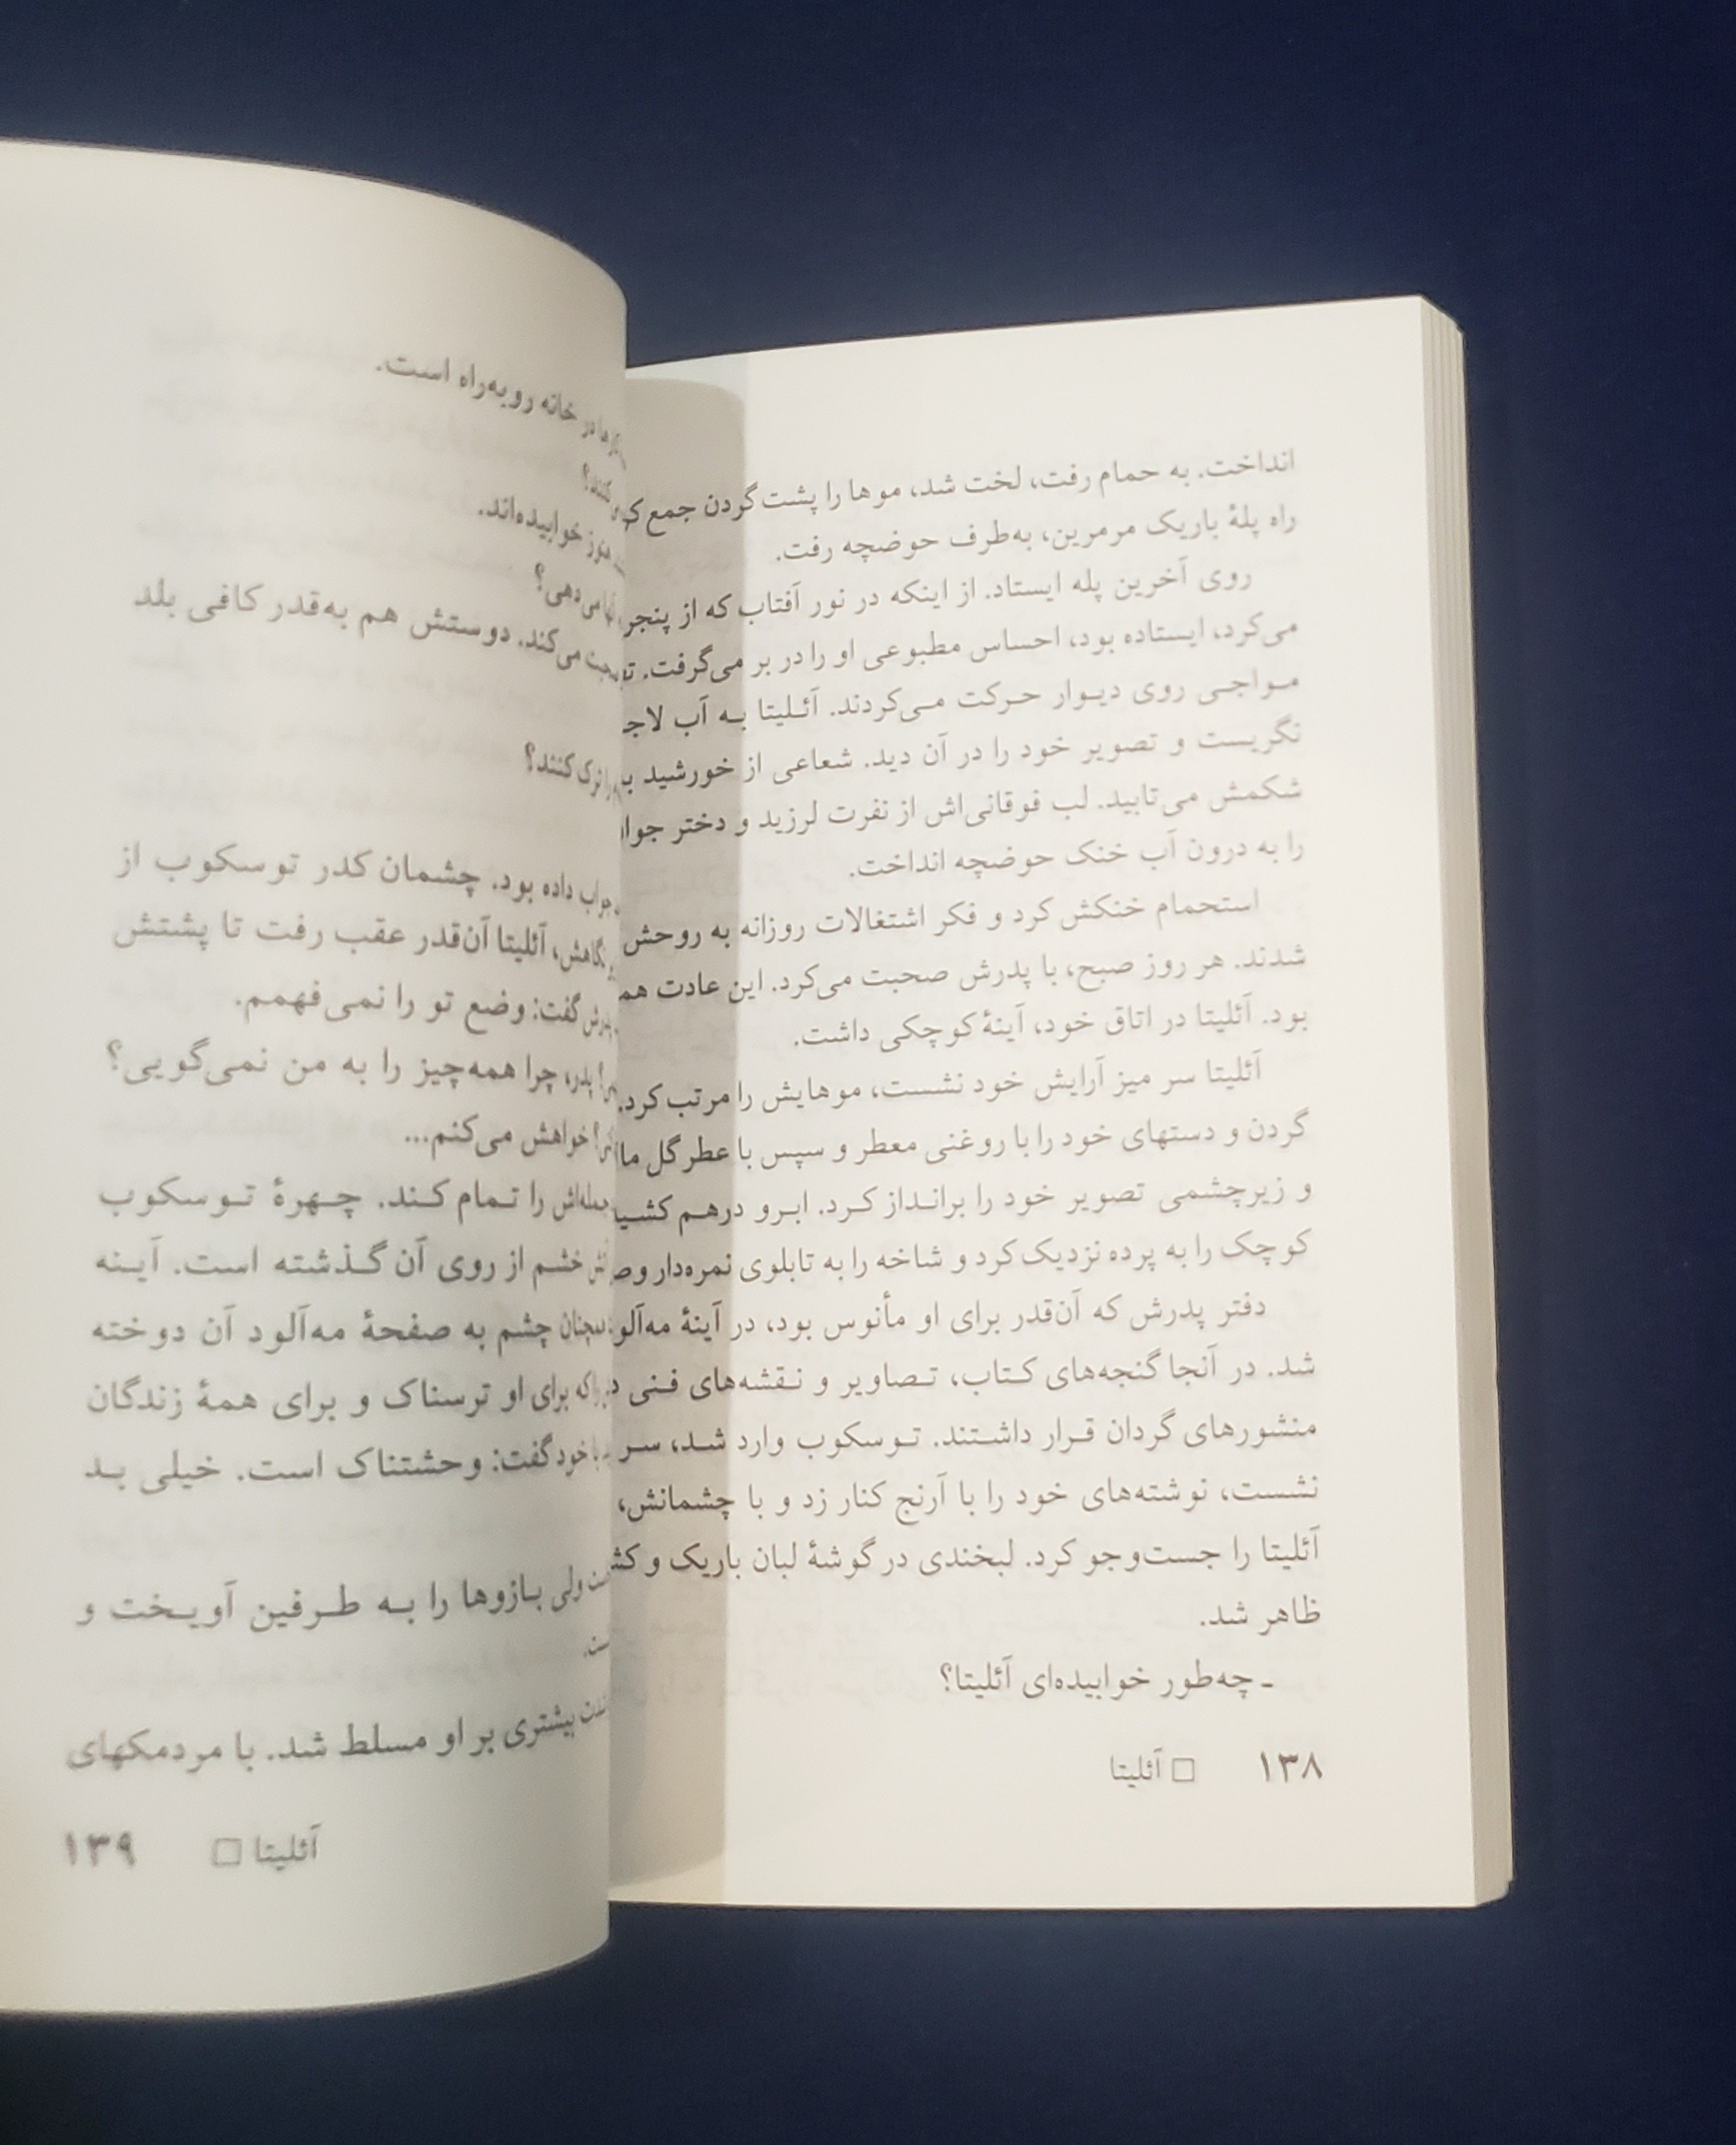 انداخت. به حمام رفت، لخت شد، موها را پشت گردن جمع
راه پلهٔ باریک مرمرین، به‌طرف حوضچه رفت.
روی آخرین پله ایستاد. از اینکه در نور آفتاب که از
می‌کرد، ایستاده بود، احساس مطبوعی او را در بر می‌گرفت.
مواجی روی دیوار حرکت می‌کردند. آئلیتا به آب
نگریست و تصویر خود را در آن دید. شعاعی از خورشید
شکمش می‌تابید. لب فوقانی‌اش از نفرت لرزید و دختر
را به درون آب خنک حوضچه انداخت.
استحمام خنکش کرد و فکر اشتغالات روزانه به روحش
شدند. هر روز صبح، با پدرش صحبت می‌کرد. این عادت
بود. آئلیتا در اتاق خود، آینهٔ کوچکی داشت.
آئلیتا سر میز آرایش خود نشست، موهایش را مرتب کرد.
گردن و دستهای خود را با روغنی معطر و سپس با عطر گل
و زیرچشمی تصویر خود را برانداز کرد. ابرو درهم
کوچک را به پرده نزدیک کرد و شاخه را به تابلوی نمره‌دار
دفتر پدرش که آن‌قدر برای او مأنوس بود، در آینهٔ
شد. در آنجا گنجه‌های کتاب، تصاویر و نقشه‌های فنی
منشورهای گردان قرار داشتند. توسکوب وارد شد، سر
نشست، نوشته‌های خود را با آرنج کنار زد و با چشمانش،
آئلیتا را جست‌وجو کرد. لبخندی در گوشهٔ لبان باریک و
ظاهر شد.
ـ چه‌طور خوابیده‌ای آئلیتا؟
۱۳۸ □ آئلیتا
در خانه روبه‌راه است.
کنند؟
هنوز خوابیده‌اند.
می‌دهی؟
می‌کند. دوستش هم به‌قدر کافی بلد
را ترک کنند؟
جواب داده بود. چشمان کدر توسکوب از
نگاهش، آئلیتا آن‌قدر عقب رفت تا پشتش
گفت: وضع تو را نمی‌فهمم.
پدر، چرا همه‌چیز را به من نمی‌گویی؟
خواهش می‌کنم...
را تمام کند. چهرهٔ توسکوب
خشم از روی آن گذشته است. آینه
چشم به صفحهٔ مه‌آلود آن دوخته
که برای او ترسناک و برای همهٔ زندگان
خود گفت: وحشتناک است. خیلی بد
ولی بازوها را به طرفین آویخت و
بیشتری بر او مسلط شد. با مردمکهای
آئلیتا □ ۱۳۹